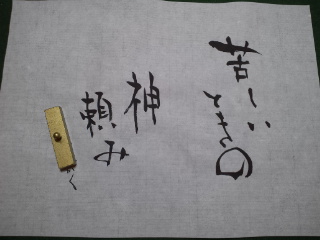 苦しい
ときの
神
頼み